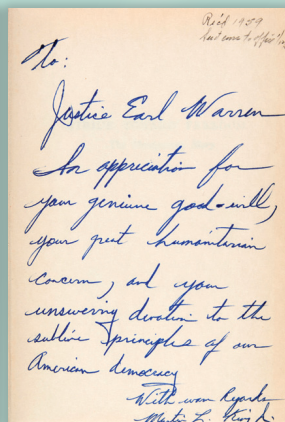 Rec'd 1959
To:
Justice Earl Warren
In appreciation for
your geniune good-will,
your great humanitarian
concern, and your
unswerving devotion to the
sublime principles of our
American democracy
With warm Regards
Martin L. King Jr.